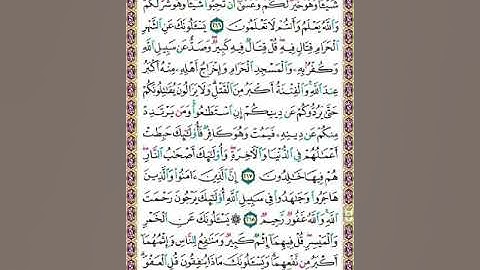 شَيْـًٔا وَهُوَ خَيْرٌ لَّكُمْ وَعَسَىٰٓ أَن تُحِبُّوا۟ شَيْـًٔا وَهُوَ شَرٌّ لَّكُمْ
وَٱللَّهُ يَعْلَمُ وَأَنتُمْ لَا تَعْلَمُونَ ٢١٦ يَسْـَٔلُونَكَ عَنِ ٱلشَّهْرِ
ٱلْحَرَامِ قِتَالٍ فِيهِ قُلْ قِتَالٌ فِيهِ كَبِيرٌ وَصَدٌّ عَن سَبِيلِ ٱللَّهِ
وَكُفْرٌۢ بِهِۦ وَٱلْمَسْجِدِ ٱلْحَرَامِ وَإِخْرَاجُ أَهْلِهِۦ مِنْهُ أَكْبَرُ
عِندَ ٱللَّهِ وَٱلْفِتْنَةُ أَكْبَرُ مِنَ ٱلْقَتْلِ وَلَا يَزَالُونَ يُقَٰتِلُونَكُمْ
حَتَّىٰ يَرُدُّوكُمْ عَن دِينِكُمْ إِنِ ٱسْتَطَٰعُوا۟ وَمَن يَرْتَدِدْ
مِنكُمْ عَن دِينِهِۦ فَيَمُتْ وَهُوَ كَافِرٌ فَأُو۟لَٰٓئِكَ حَبِطَتْ
أَعْمَٰلُهُمْ فِى ٱلدُّنْيَا وَٱلْـَٔاخِرَةِ وَأُو۟لَٰٓئِكَ أَصْحَٰبُ ٱلنَّارِ
هُمْ فِيهَا خَٰلِدُونَ ٢١٧ إِنَّ ٱلَّذِينَ ءَامَنُوا۟ وَٱلَّذِينَ
هَاجَرُوا۟ وَجَٰهَدُوا۟ فِى سَبِيلِ ٱللَّهِ أُو۟لَٰٓئِكَ يَرْجُونَ رَحْمَتَ
ٱللَّهِ وَٱللَّهُ غَفُورٌ رَّحِيمٌ ٢١٨ ۞ يَسْـَٔلُونَكَ عَنِ ٱلْخَمْرِ
وَٱلْمَيْسِرِ قُلْ فِيهِمَآ إِثْمٌ كَبِيرٌ وَمَنَٰفِعُ لِلنَّاسِ وَإِثْمُهُمَآ
أَكْبَرُ مِن نَّفْعِهِمَا وَيَسْـَٔلُونَكَ مَاذَا يُنفِقُونَ قُلِ ٱلْعَفْوَ